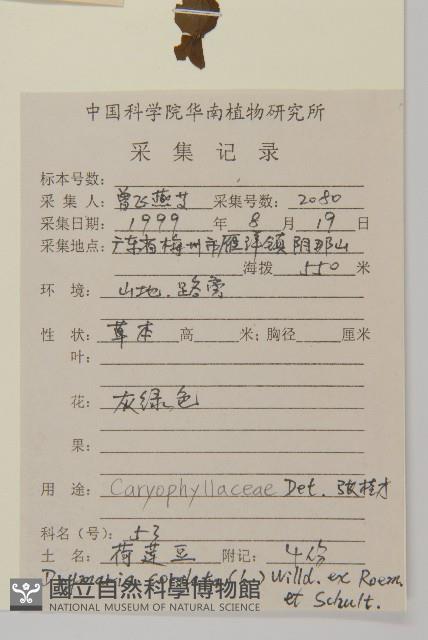 中国科学院华南植物研究所
采集记录
标本号数:
采集人: 曾飞燕 采集号数: 2080
采集日期: 1999 年 8 月 19 日
采集地点: 广东省梅州市雁洋镇阴那山
海拨 550 米
环境: 山地.路旁
性状: 草本 高 米; 胸径 厘米
叶:
花: 灰绿色
果:
用途: Caryophyllaceae Det. 张桂才
科名(号): 53
土名: 荷莲豆 附记: 4份
Drymaria cordata (L.) Willd. ex Roem.
et Schult.
國立自然科學博物館
NATIONAL MUSEUM OF NATURAL SCIENCE